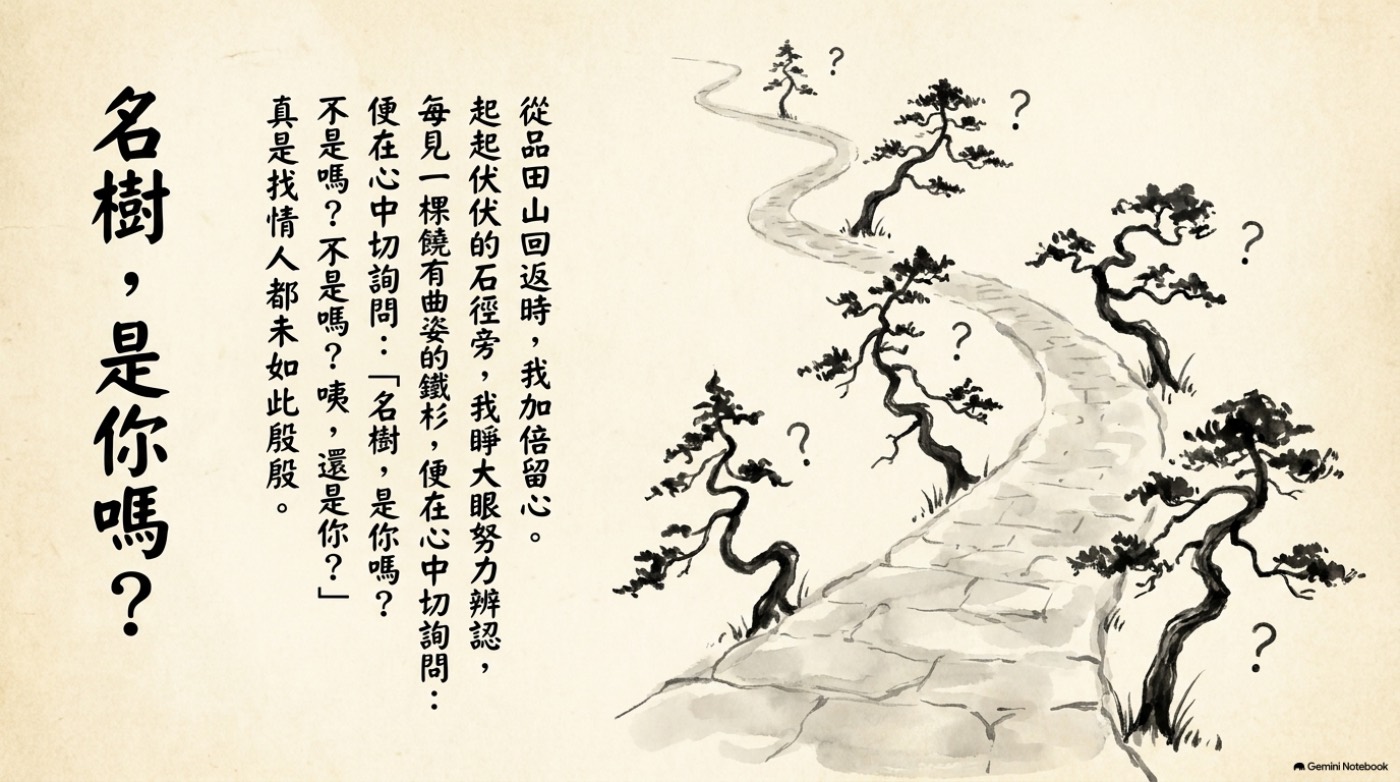 從品田山回返時，我加倍留心。
起起伏伏的石徑旁，我睜大眼努力辨認，
每見一棵饒有曲姿的鐵杉，便在心中切詢問：
便在心中切詢問：「名樹，是你嗎？
不是嗎？不是嗎？咦，還是你？」
真是找情人都未如此殷殷。
名樹，是你嗎？
？
？
？
？
？
？
Gemini Notebook